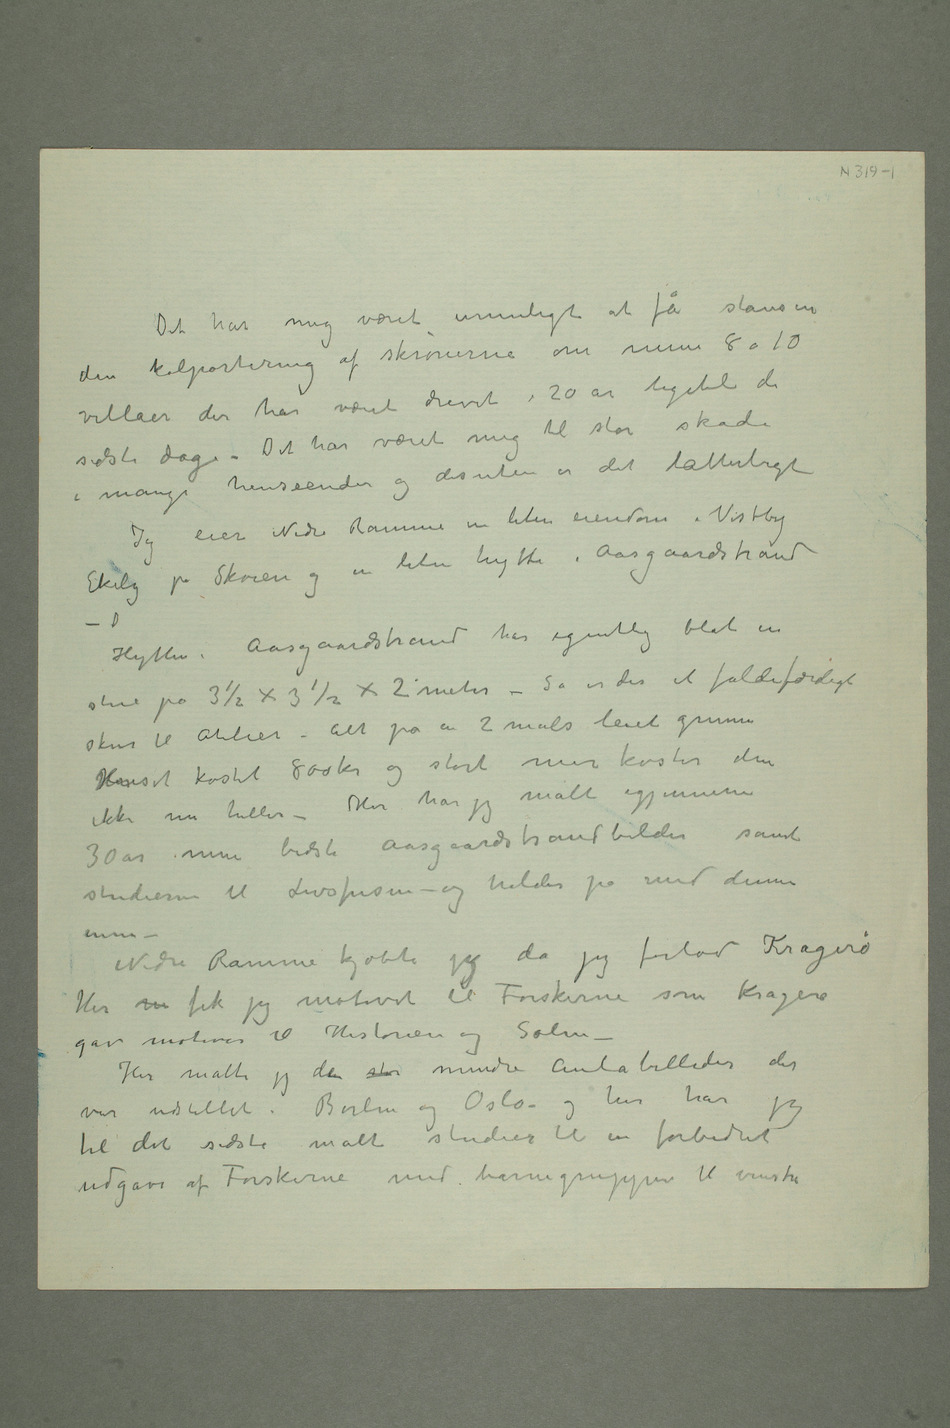 N 319-1
Det har mig været umuligt at få stanset
den kolportering af skrønerne om mine 8 a 10
villaer der har været drevet i 20 år ligetil de
sidste dage – Det har været mig til stor skade
i mange henseender og desuten er det latterligt
Jeg eier Nedre Ramme en liten eiendom i Vistby
Ekely på Skøien og en liten hytte i Aasgaardstrand
–
Hytten i Aasgaardstrand har egentlig blot en
stue på 3½ × 3½ × 2 meter – Så er der et faldefærdigt
skur til atelier – Alt på en 2 måls leiet grunn
Huset kostet 800kr og stort mer koster den
ikke nu heller – Her har jeg malt igjennem
30 år mine bedste Aasgaardstrandbilder samt
studierne til Livsfrisen – og holder på med denne
ennu –
Nedre Ramme kjøbte jeg da jeg forlod Kragerø
Her m fik jeg motivet til Forskerne som Kragerø
gav motiver til Historien og Solen –
Her malte jeg de stor mindre Aulabilleder der
var udstillet i Berlin og Oslo – og her har jeg
til det sidste malt studier til en forbedret
udgave af Forskerne med barnegruppen til venstre